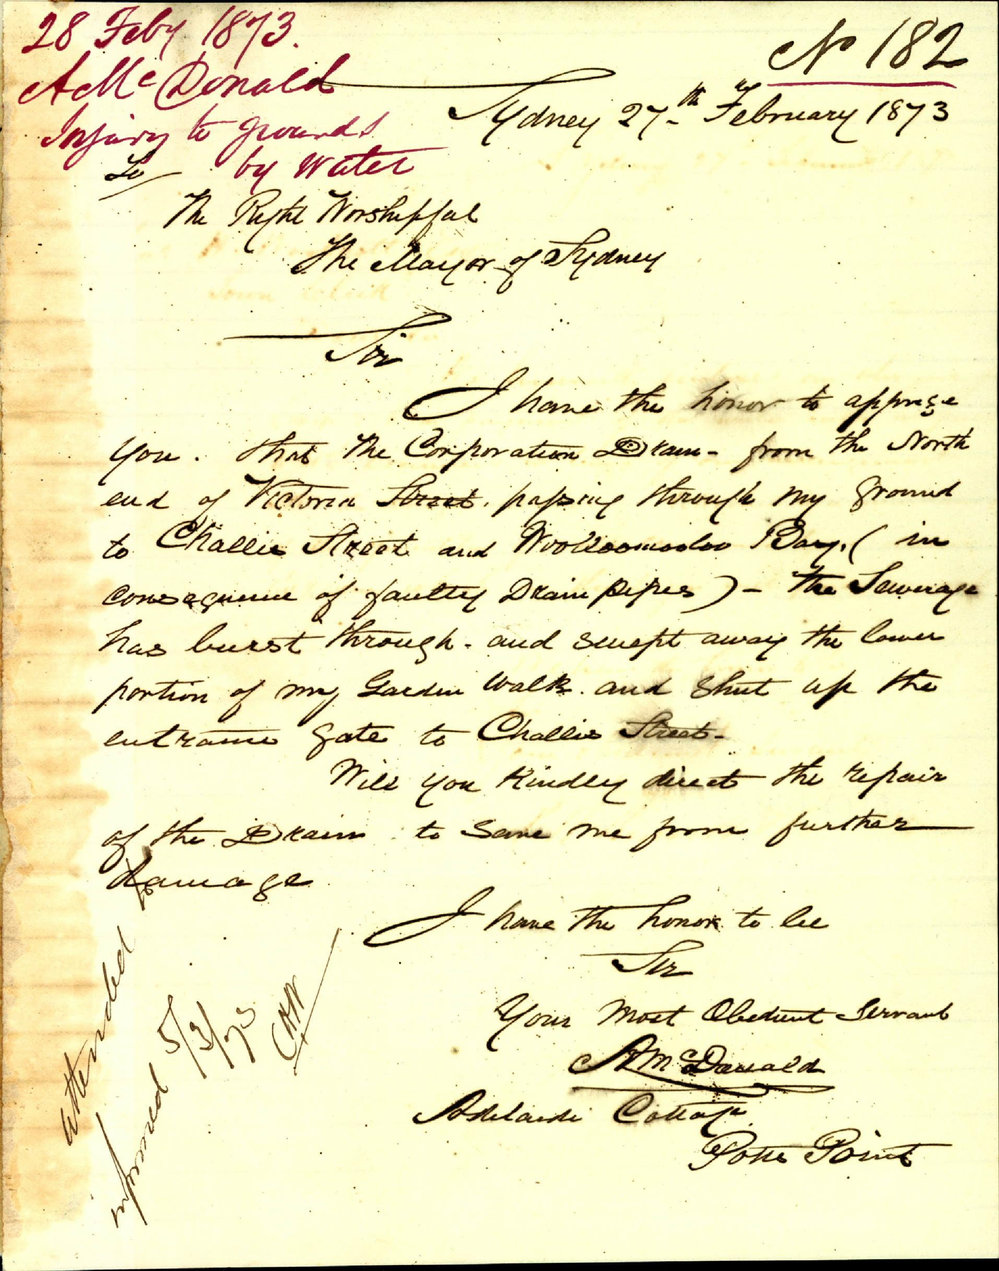 28 Feby 1873.
A McDonald
Injury to grounds
by Water
No 182
Sydney 27th February 1873
To
The Right Worshipful
The Mayor of Sydney
Sir
I have the honor to apprize
you. that the Corporation Drain - from the North
end of Victoria Street. passing through my ground
to Challis Street and Woolloomooloo Bay. (in
consequence of faulty Drain pipes) - the Sewerage
has burst through. and swept away the lower
portion of my Garden Walk. and shut up the
entrance gate to Challis Street.
Will you Kindly direct the repair
of the Drain to save me from further
damage
I have the honor to be
Sir
Your Most Obedient Servant
A McDonald
Adelaide Cottage
Potts Point
attended to
informed 5/3/73